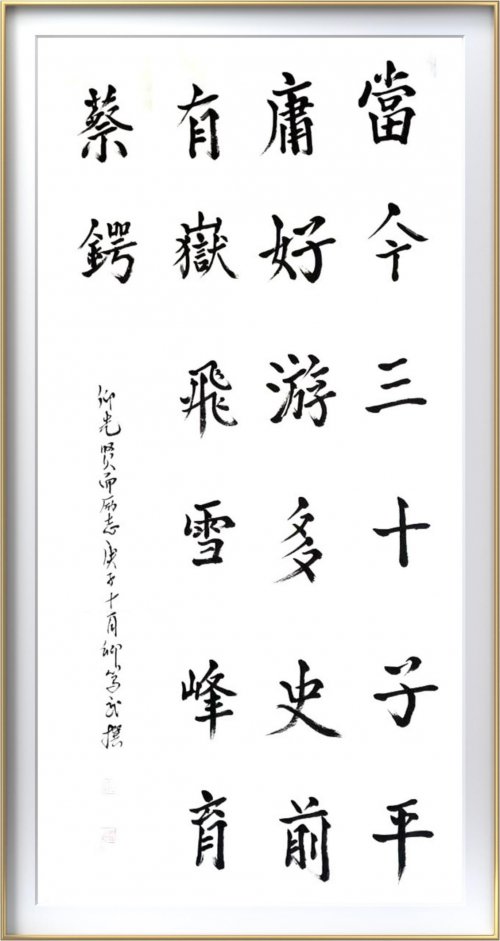 當今三十子平
庸好游多史前
有嶽飛雪峰育
蔡鍔
仰先賢而励志庚子十月柳笃武撰